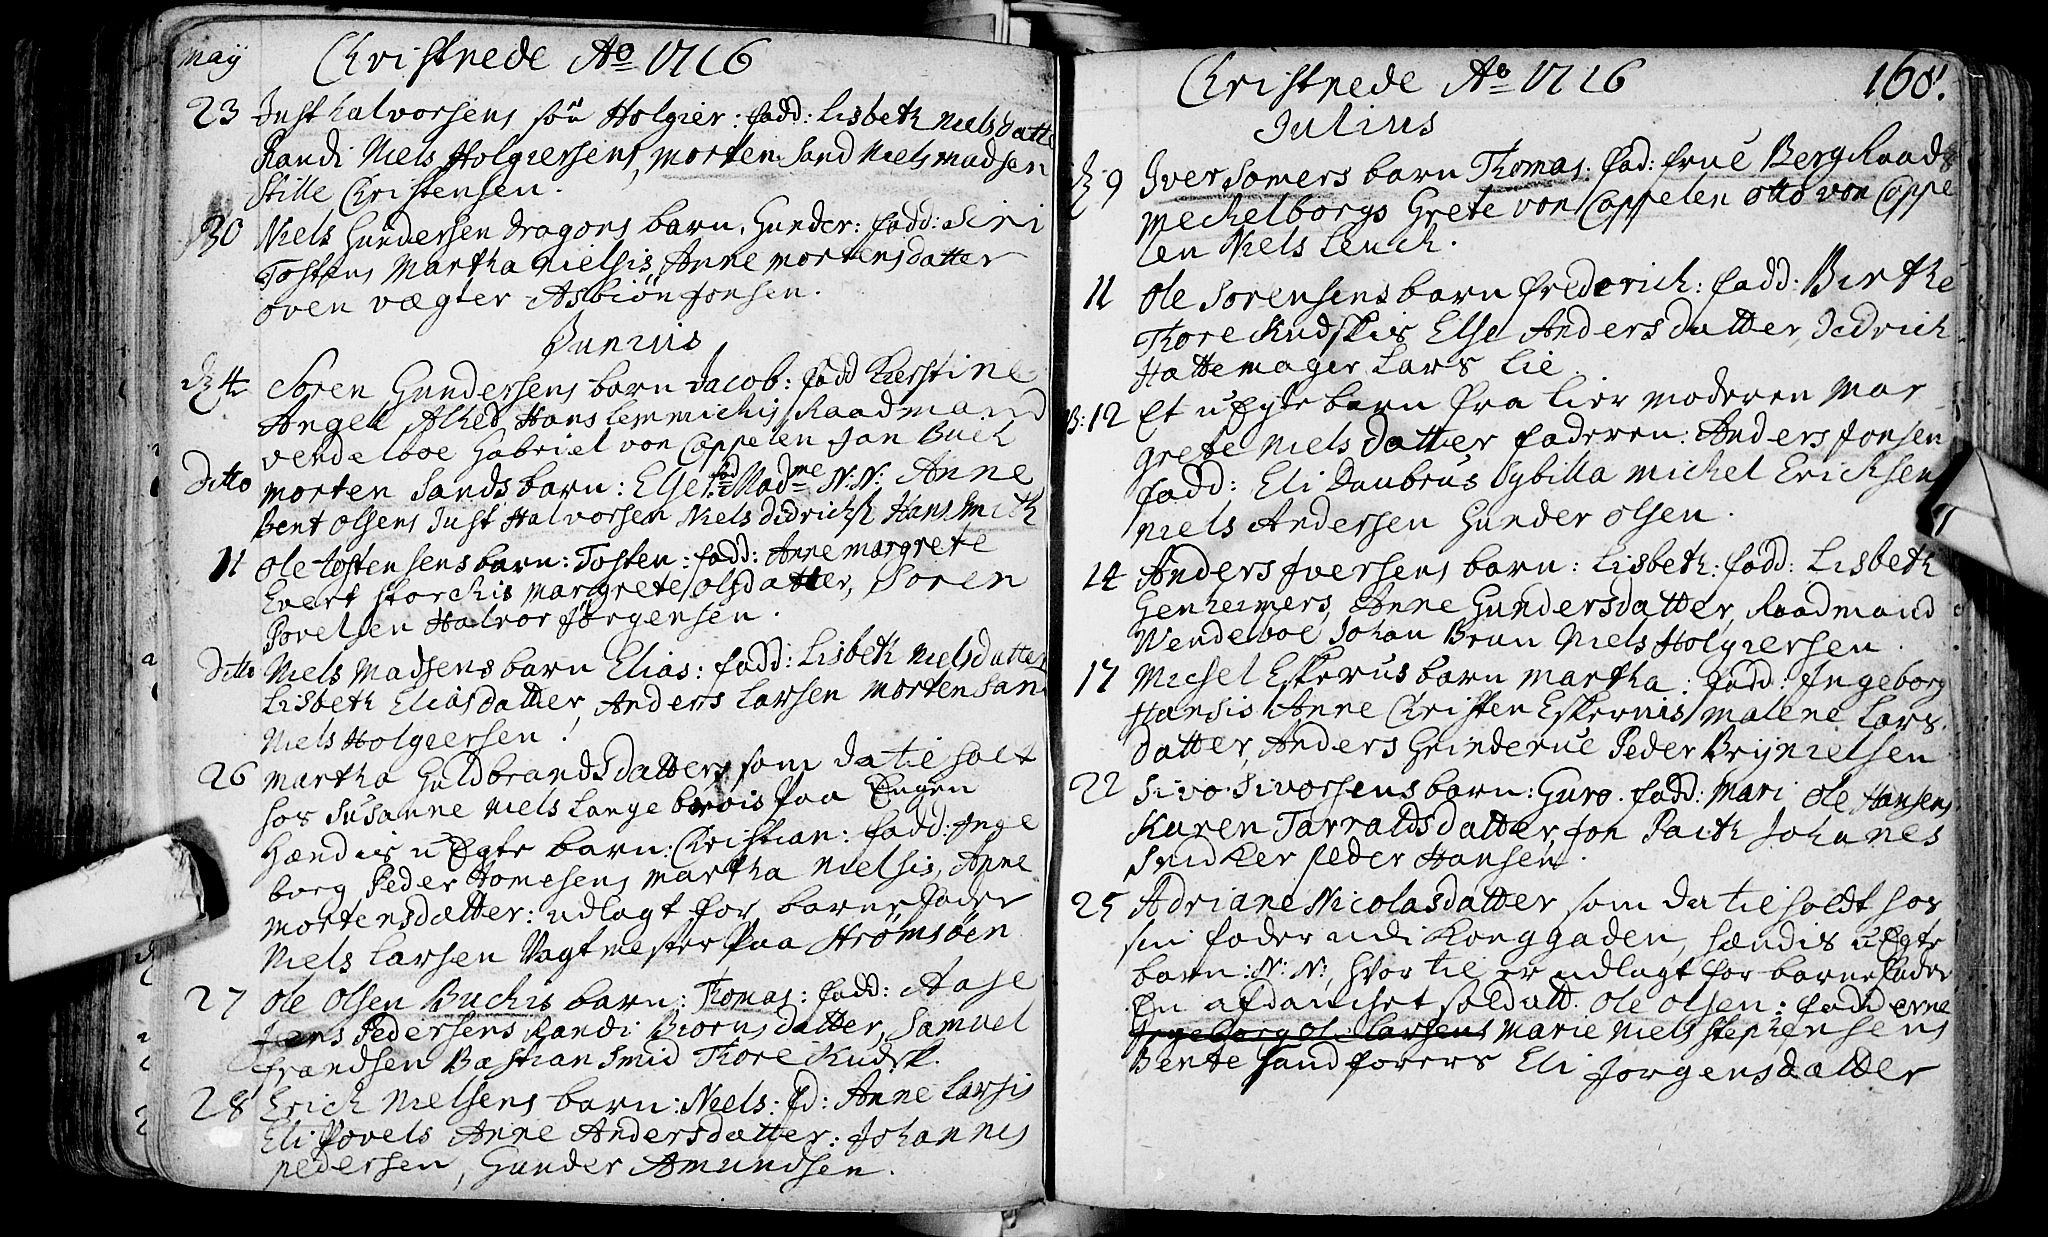 maÿ Christnede Ao 1716
23 Just halvorsens søn Holgier: fadd: Lisbeth Nielsdatte
Randi Niels Holgiersens, morten Sand Niels madsen
Stille Christensen.
30 Niels Gundersen dragons barn. Gunder: fadd: Siri
Tostens Martha nielsis, Anne mortensdatter
oven vægter Asbiön Jonsen.
Junius
d 4 Sören Gundersens barn Jacob: fadd Kierstine
Angel Alhed Hans lemmichis Raadmand
vendelboe Gabriel von Cappelen Jan Buch
Ditto morten Sands barn: Else: fad: Madme N: N: Anne
Bent olsens Just Halvorsen Niels didrichs Hans Smith
11 Ole tostensens barn: Tosten: fadd: Anne margrete
Evert storchis margrete olsdatter, Sören
Povelsen Halvor Jörgensen.
ditto Niels Madsens barn Elias: fadd: Lisbeth Nielsdatter
Lisbeth Eliasdatter, Anders Larsen morten San
Niels Holgiersen.
26 martha Guldbrandsdatter, som da tilholt
hos Susanne niels Langebrois paa Engen
hændis uEgte barn: Christian: fadd: Inge
borg Peder Homesens martha nielsis, Anne
mortensdatter: udlagt for barnefader
Niels Larsen Vagtmester paa Strømsöen
27 Ole Olsen Buchis barn: Thomas: fadd: Aase
Jens Pedersens Randi Biornsdatter, Samuel
frandsen Bastian Smid Thore Kudsk.
28 Erich Nielsens barn: Niels: fd: Anne larsis
Eli Povels Anne Andersdatter: Johannis
pedersen, Gunder Amundsen.
Christnede Ao 1716 168.
Julius
d 9 Iver Somers barn Thomas: fad: frue BergRaads
Mechelborgs Grete von Cappelen otto von Cappe
len Niels Lemch.
11 Ole Sörensens barn frederich: fadd: Birthe
Thore Kudskis Else Andersdatter, Didrich
Hattemager Lars Lie.
B: 12 Et uEgte barn fra Lier moderen mar
grete Nielsdatter faderen: Anders Jonsen
fadd: Eli Daubrus Sybilla michel Ericksen
niels Andersen Gunder olsen.
14 Anders Iversens barn: Lisbeth: fadd: Lisbeth
Genheimers, Anne Gundersdatter, Raadmand
Wendelboe Johan Brun Niels Holgiersen.
17 Michel Eskerus barn martha: fadd: Ingeborg
Hansis Anne Christen Eskerus malene Lars
datter, Anders Grinderue Peder Brÿnielsen
22 Sivo. Sivorsens barn: Guro. fadd: mari Ole Hansens
Karen Tarraldsdatter, Jon Paith Johanes
Snidker peder Hansen.
25 Adriane Nicolasdatter som da tilholdt hos
sin fader udi Konggaden, hændis uEgte
barn: N: N:, hvor til er udlagt for barnefader
En afdancket soldatt. Ole Olsen: fadd
Ingeborg Ole Larsens marie Niels Stephensens
Bente Sandforers Eli Jorgensdatter